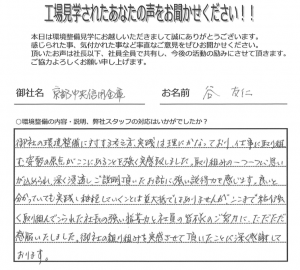 工場見学されたあなたの声をお聞かせください！！
本日は環境整備見学にお越しいただきまして誠にありがとうございます。
感じられた事、気付かれた事など率直なご意見をぜひお聞かせください。
頂いたお声は社長以下、社員全員で共有し、今後の活動の励みにさせて頂きます。
ご協力よろしくお願い申し上げます。
御社名 京都中央信用金庫 お名前 谷
○環境整備の内容・説明、弊社スタッフの対応はいかがでしたか？
御社の環境整備に対する考え方、実践は理にかなっており、仕事に取り組
む姿勢の原点がここにあることを強く実感致しました。取り組みの一つ一つに思い
が込められ、深く浸透し、ご説明頂いたお話に強い説得力を感じます。良いと
分かっていても実践し継続していくことは並大抵ではありませんが、ここまで
取り組んでこられた社長の強い信念と社員の皆様のご努力に、ただただ
感服いたしました。御社の取り組みを実感させて頂いたことに深く感謝して
おります。